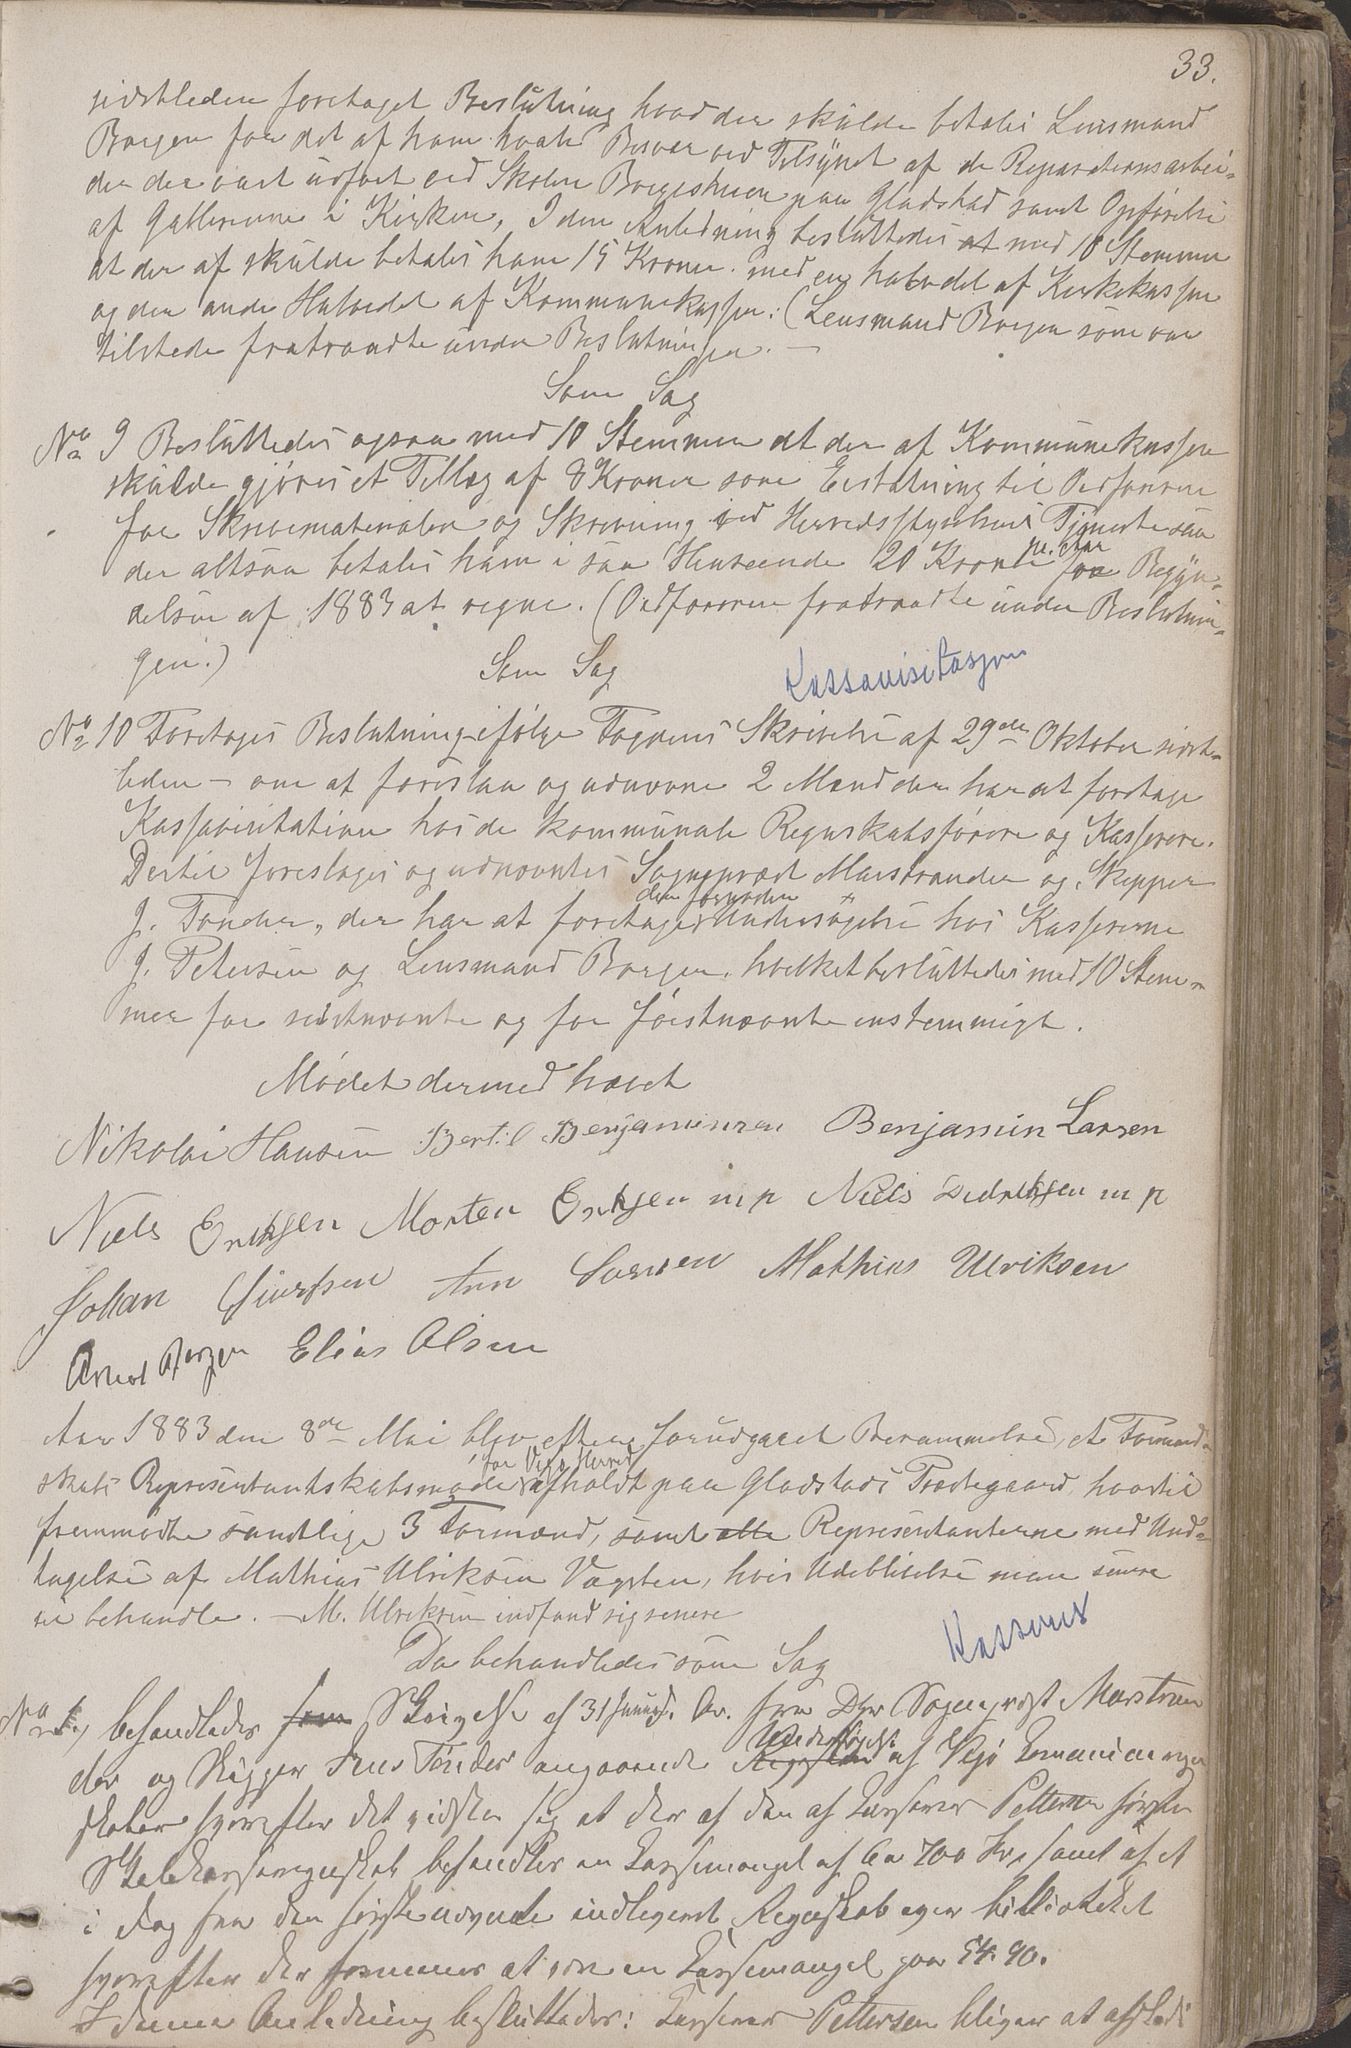 33.
sidstleden foretaget Beslutning hvad der skulde betales Lensmand
Borgen for det af ham havte Besvær ved Tilsynet af de Reparationsarbei-
der der vart udført ved Skolen Borgestuen paa Gladstad samt Opførelse
af Gallerierne i Kirken, I den Anledning besluttedes at med 10 Stemmer
at der af skulde betales ham 15 Kroner. med en halvdel af Kirkekassen
og den anden Halvdel af Kommunekassen. (Lensmand Borgen som var
tilstede fratraadte under Beslutningen. —
Som Sag
No 9 Besluttedes ogsaa med 10 Stemmer at der af Kommunekassen
skulde gjøres et Tillæg af 8 Kroner som Erstatning til Ordføreren
for Skrivematerialer og Skrivning ved Herredsstyrelsens Tjeneste saa
der altsaa betales ham i saa Henseende 20 Kroner pr. Aar for Begyn-
delsen af 1883 at regne. (Ordføreren fratraadte under Beslutnin-
gen.)
Som Sag
Kassavisitasjon
No 10 Foretages Beslutning ifølge Fogdens Skrivelse af 29de Oktober sidst-
leden — om at foreslaa og udnævne 2 Mænd der har at foretage
Kassavisitation hos de kommunale Regnskabsførere og Kasserere.
Dertil foreslages og udnævntes Sognepræst Marstrander og Skipper
J. Tønder, der har at foretage den fornødne Undersøgelse hos Kassererne
J. Petersen og Lensmand Borgen. hvilket besluttedes med 10 Stem-
mer for sidstnævnte og for førstnævnte enstemmigt.
Mødet dermed hævet
Nikolai Hansen Bertil Benjaminsen Benjamin Larsen
Niels Eriksen Morten Eriksen m p Niels Didriksen m p
Johan Sivertsen Arn Sørensen Mathias Ulriksen
Borgen Elias Olsen
Aar 1883 den 8de Mai blev efter forudgaaet Berammelse, et Formand-
skabs Representantskabsmøde for Vega Herred afholdt paa Gladstads Præstegaard, hvortil
fremmødte samtlige 3 Formænd, samt alle Representanterne med Und-
tagelse af Mathias Ulriksen Vægsten, hvis Udeblivelse man senere
vil behandle. — M. Ulriksen indfandt sig senere
Kassens
Da behandledes som Sag
No 1, behandledes som Skrivelse af 31 Januar d. Ar. fra Dhr Sognepræst Marstran
der og Skipper Jens Tønder angaaende Undersøgelse af Vegø Kommunes regn
skaber hvorefter det viste sig at der af den af Kasserer Pettersen førte
Skolekasseregnskab befandtes en Kassemangel af Ca 700 Kr, samt af et
i dag fra den sidstenævnte indleveret Regnskab over
hvorefter der fremmes at være en Kassemangel paa 54.90.
I denne Anledning besluttedes: Kasserer Pettersen bliver at afskedi